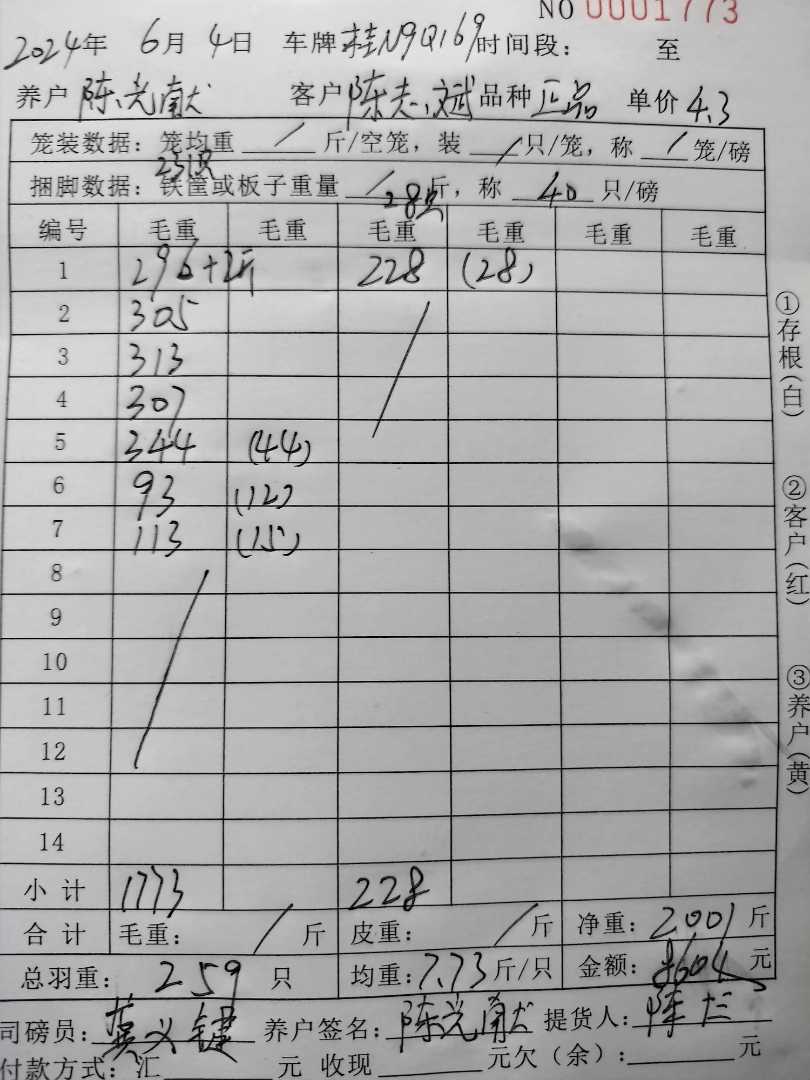 NO 0001773
2024年 6月 4日 车牌桂N9Q169时间段： 至
养户 陈光献 客户 陈志斌 品种 正品 单价 4.3
笼装数据：笼均重 / 斤/空笼，装 / 只/笼，称 / 笼/磅
231只
捆脚数据：铁筐或板子重量 / 斤，称 40 只/磅
28只
编号 毛重 毛重 毛重 毛重 毛重 毛重
1 296+2斤 228 (28)
2 305
3 313
4 307
5 344 (44)
6 93 (12)
7 113 (15)
8
9
10
11
12
13
14
小计 1773 228
合计 毛重： / 斤 皮重： / 斤 净重：2001斤
总羽重： 259 只 均重：7.73斤/只 金额：8604元
司磅员： 义键 养户签名：陈光献 提货人：陈
付款方式：汇 元 收现 元欠（余）： 元
①存根(白)
②客户(红)
③养户(黄)